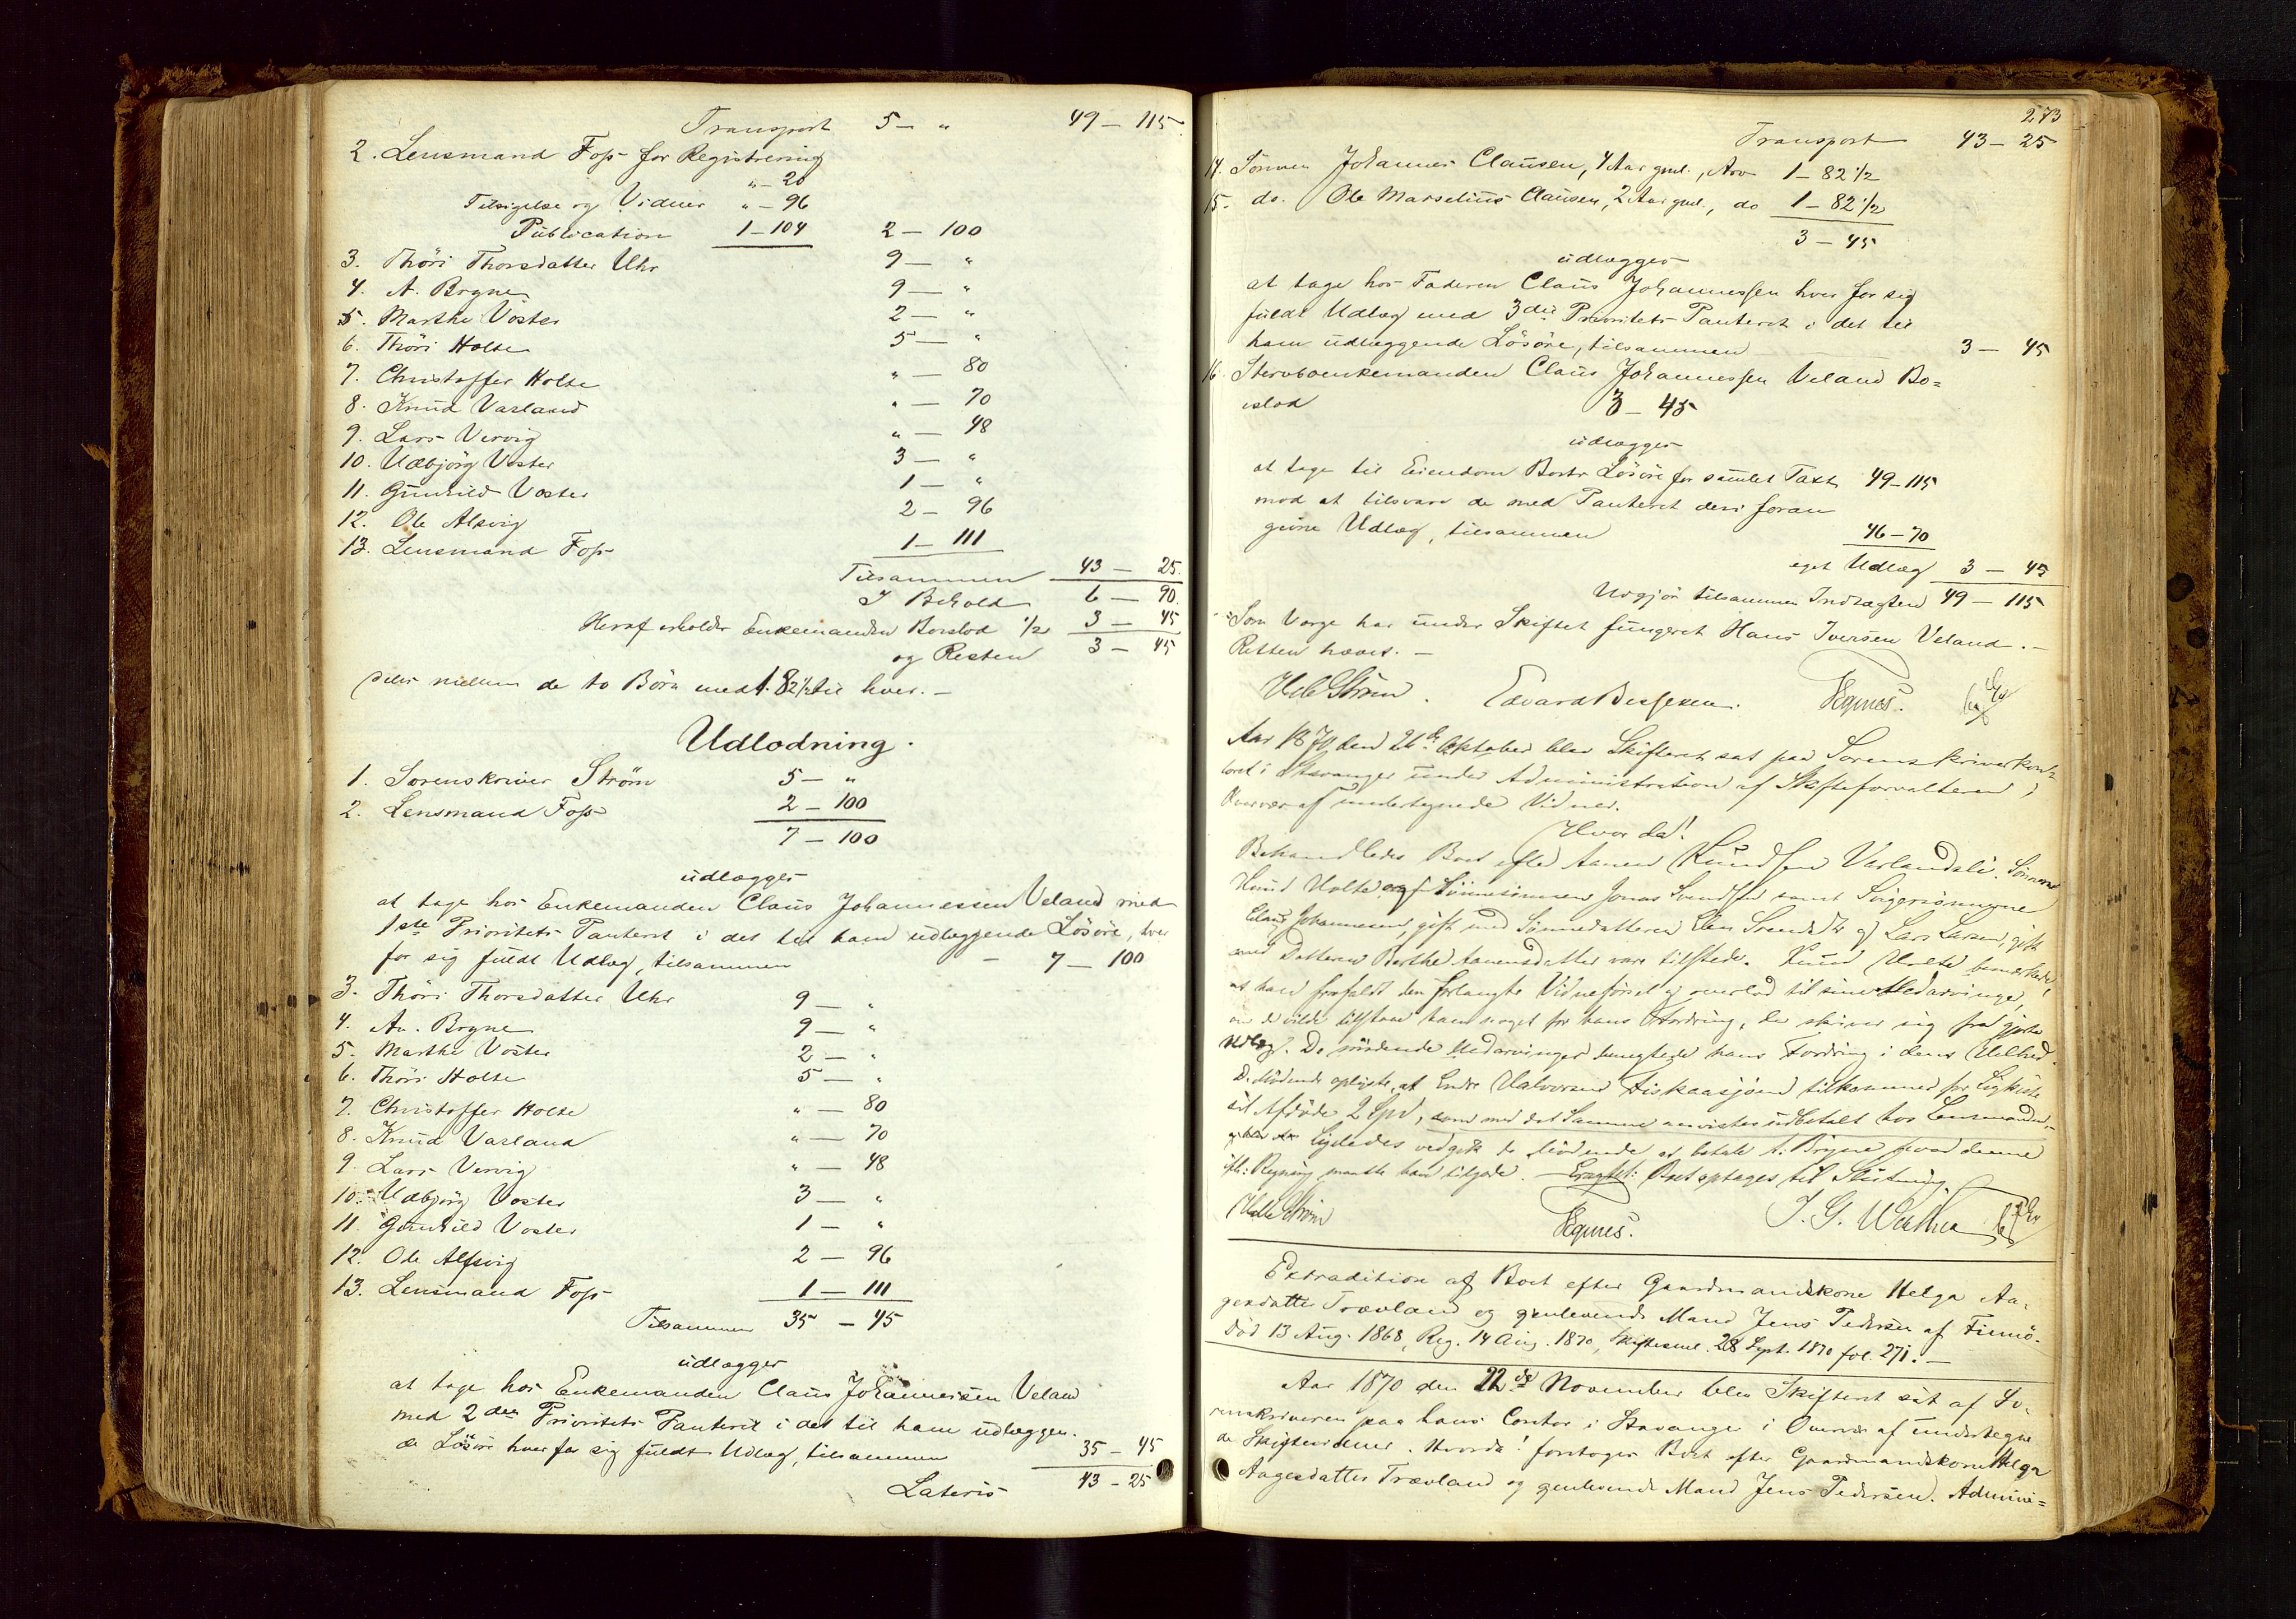 Transport 5 - " 49 - 115.
2. Lensmand Foss for Registrering
" - 20
Tilsigelse og Vidner " - 96
Publication 1 - 104 2 - 100
3. Thöri Thorsdatter Uhr 9 - "
4. A. Bryne 9 - "
5. Marthe Voster 2 - "
6. Thöri Holte 5 - "
7. Christoffer Holte " - 80
8. Knud Varland " - 70
9. Lars Vervig " - 48
10. Udbjörg Voster 3 - "
11. Gunhild Voster 1 - "
12. Ole Alsvig 2 - 96
13. Lensmand Foss 1 - 111
Tilsammen 43 - 25.
I Behold 6 - 90.
Heraf erholder Enkemanden Boeslod 1/2 3 - 45
og Resten 3 - 45
deles mellem de to Börn med 1. 82 1/2 til hver. -
Udlodning.
1. Sorenskriver Ström 5 - "
2. Lensmand Foss 2 - 100
7 - 100
udlægges
at tage hos Enkemanden Claus Johannessen Veland med
1ste Prioritets Panteret i det til ham udlæggende Lösöre, hver
for sig fuldt Udlæg, tilsammen - 7 - 100
3. Thöri Thorsdatter Uhr 9 - "
4. An. Bryne 9 - "
5. Marthe Voster 2 - "
6. Thöri Holte 5 - "
7. Christoffer Holte " - 80
8. Knud Varland " - 70
9. Lars Vervig " - 48
10. Udbjörg Voster 3 - "
11. Gunhild Voster 1 - "
12. Ole Alfsvig 2 - 96
13. Lensmand Foss 1 - 111
Tilsammen 35 - 45
udlægges
at tage hos Enkemanden Claus Johannessen Veland
med 2den Prioritets Panteret i det til ham udlæggen-
de Lösöre hver for sig fuldt Udlæg, tilsammen 35 - 45
Lateris 43 - 25
273
Transport 43 - 25
14. Sönnen Johannes Clausen, 4 Aar gml., Arv 1 - 82 1/2
15. do. Ole Marselius Clausen, 2 Aar gml., do 1 - 82 1/2
3 - 45
udlægges
at tage hos Faderen Claus Johannessen hver for sig
fuldt Udlæg med 3die Prioritets Panteret i det til
ham udlæggende Lösöre, tilsammen 3 - 45
16. Sterbboenkemanden Claus Johannessen Veland Bo=
eslod 3 - 45
udlægges
at tage til Eiendom Boets Lösöre for samlet Taxt 49 - 115
mod at tilsvare de med Panteret deri foran
givne Udlæg, tilsammen 46 - 70
eget Udlæg 3 - 45
Udgjör tilsammen Indtægten 49 - 115
Som Verge har under Skiftet fungeret Hans Iversen Veland. -
Retten hævet. -
Helle Ström. Edvard Bessesen. Hegnes.
Aar 1870 den 26de Oktober blev Skifteret sat paa Sorenskriverkon=
toret i Stavanger under Administration af Skifteforvalteren i
Overvær af undertegnede Vidner.
Hvor da!
Behandledes Boet efter Aanen Knudsen Varlandsli. Sönnen
Knud Holte og Sönnesönnen Jonas Svendsen samt Svigersönnerne
Claus Johannesen, gift med Sönnedatteren Elen Svendsdtr og Lars Larsen, gift
med Datteren Berthe Aanensdatter vare tilstede. Knud Holte bemærkede,
at han frafaldt den forlangte Vidneförsel og overlod til sine Medarvinger,
om de vilde tilstaa ham noget for hans Fordring, der skriver sig fra gjorte
Udlæg. De mödende Medarvinger benegtede hans Fordring i dens Helhed.
De Mödende oplyste, at Endre Halvorsen Fiskaasjöen tilkommer for Ligkiste
til Afdöde 2 Spd, som med det Samme anvistes udbetalt hos Lensmanden,
ligeledes vedgik de Mödende at betale A. Bryne hvad denne
ifl. Regning maatte have tilgode. - Eragtet: Boet optages til Slutning.
Helle Ström Hegnes. J. G. Werther
Extradition af Boet efter Gaardmandskone Helga Aa=
gesdatter Trævland og gjenlevende Mand Jens Pedersen af Finnö.
Död 13 Aug. 1868, Reg. 14 Aug. 1870, Skiftesml. 28 Sept. 1870 fol. 271. -
Aar 1870 den 22de November blev Skifteret sat af So=
renskriveren paa hans Contor i Stavanger i Overvær af undertegne
de Skiftevidner. Hvorda! foretoges Boet efter Gaardmandskone Helga
Aagesdatter Trævland og gjenlevende Mand Jens Pedersen. Admini=